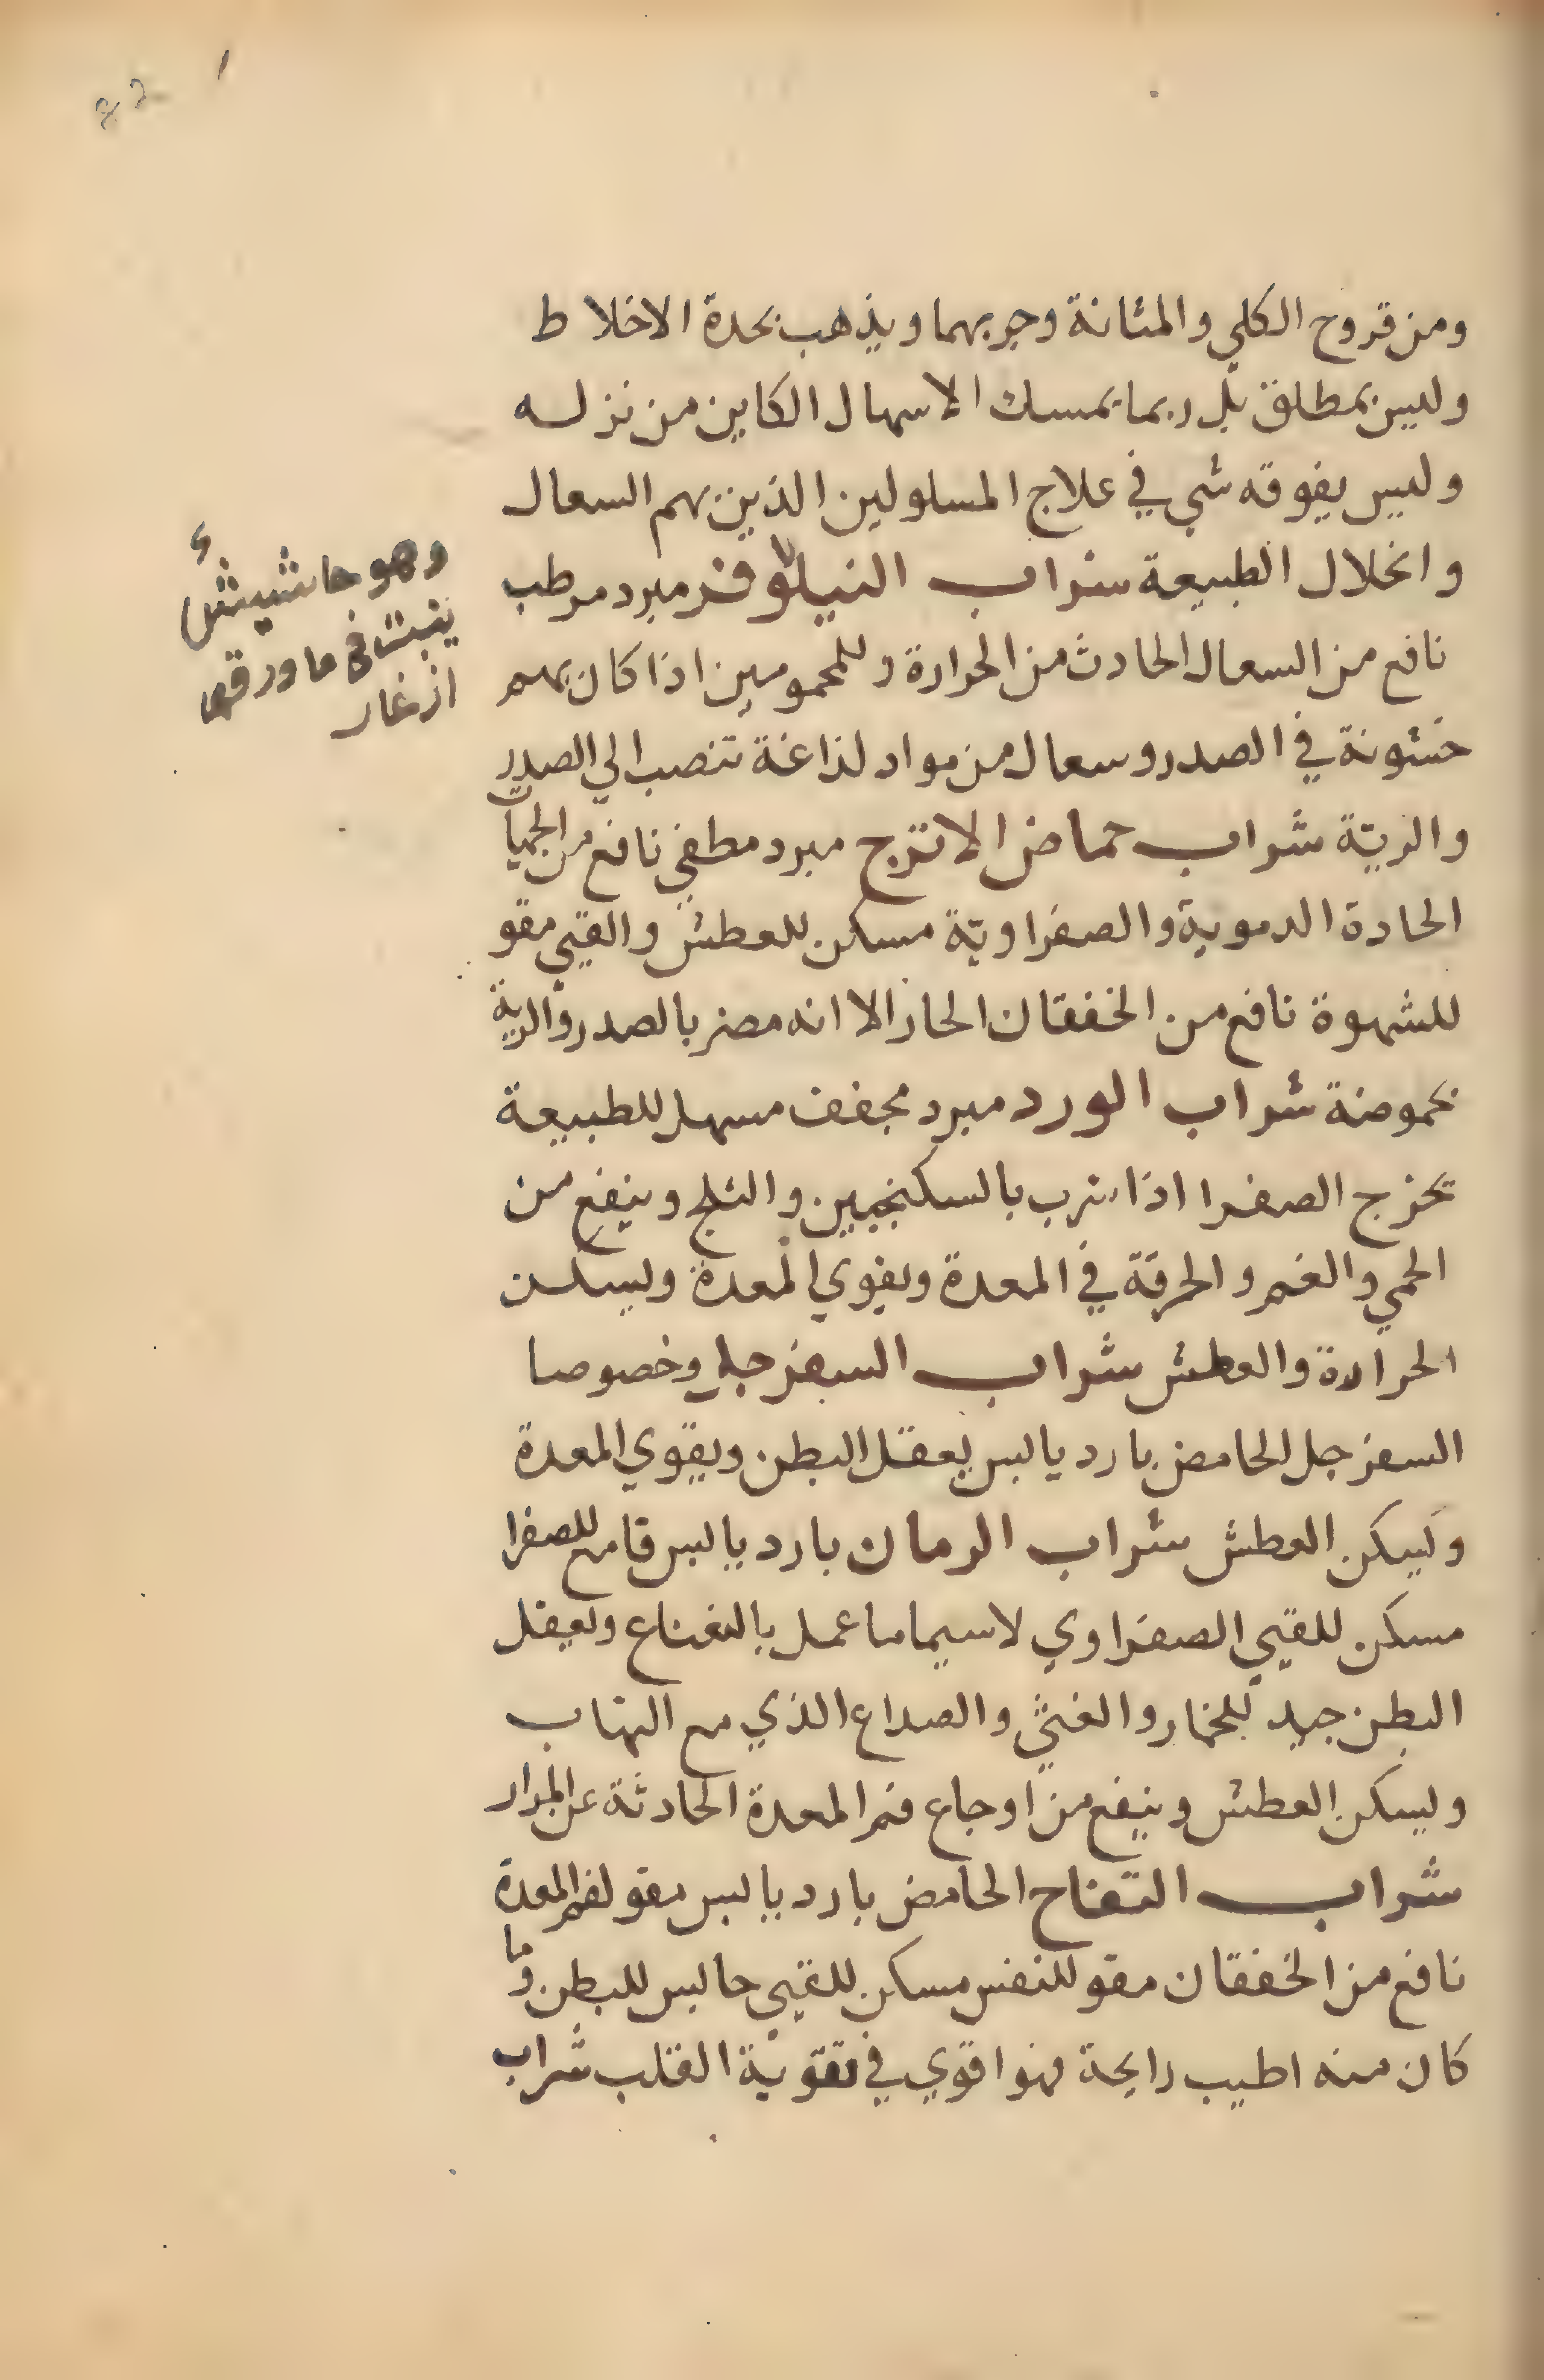 ومن قروح الكلي والمثانة وجربهما ويذهب بحدة الاخلاط
وليس بمطلق بل ربما يمسك الاسهال الكاين من نزله
وليس يفوقه شي في علاج المسلولين الذين بهم السعال
وانحلال الطبيعة شراب النيلوفر مبرد مرطب
نافع من السعال الحادث من الحرارة وللمحمومين اذا كان بهم
خشونة في الصدر وسعال من مواد لذاعة تنصب الي الصدر
والريّة شراب حماض الاترج مبرد مطفي نافع من الحميات
الحادة الدموية والصفراويّة مسكن للعطش والقيي مقو
للشهوة نافع من الخفقان الحار الا انه مضر بالصدر والرية
بحموضة شراب الورد مبرد مجفف مسهل للطبيعة
يخرج الصفرا اذا شرب بالسكنجبين والثلج وينفع من
الحمي والغم والحرقة في المعدة ويقوي المعدة ويسكن
الحرارة والعطش شراب السفرجل وخصوصا
السفرجل الحامض بارد يابس يعقل البطن ويقوي المعدة
ويسكن العطش شراب الرمان بارد يابس قامع للصفرا
مسكن للقيي الصفراوي لاسيما ما عمل بالنعناع ويعقل
البطن جيد للخمار والغثي والصداع الذي مع التهاب
ويسكن العطش وينفع من اوجاع فم المعدة الحادثة عن المرار
شراب التفاح الحامض بارد يابس مقو لفم المعدة
نافع من الخفقان مقو للنفس مسكن للقيي حابس للبطن وما
كان منه اطيب رايحة فهو اقوي في تقوية القلب شراب
وهو حاشيش
ينبت في ما ورقها